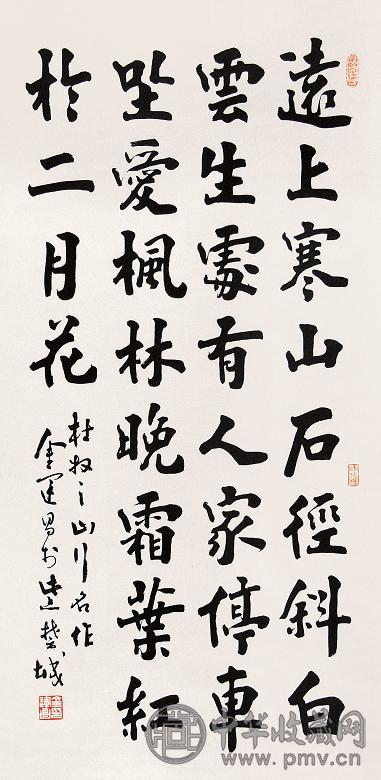 遠上寒山石徑斜白
雲生處有人家停車
坐愛楓林晚霜葉紅
於二月花
杜牧之山行名作
金運昌於楚城
中华收藏网
www.pmv.cn